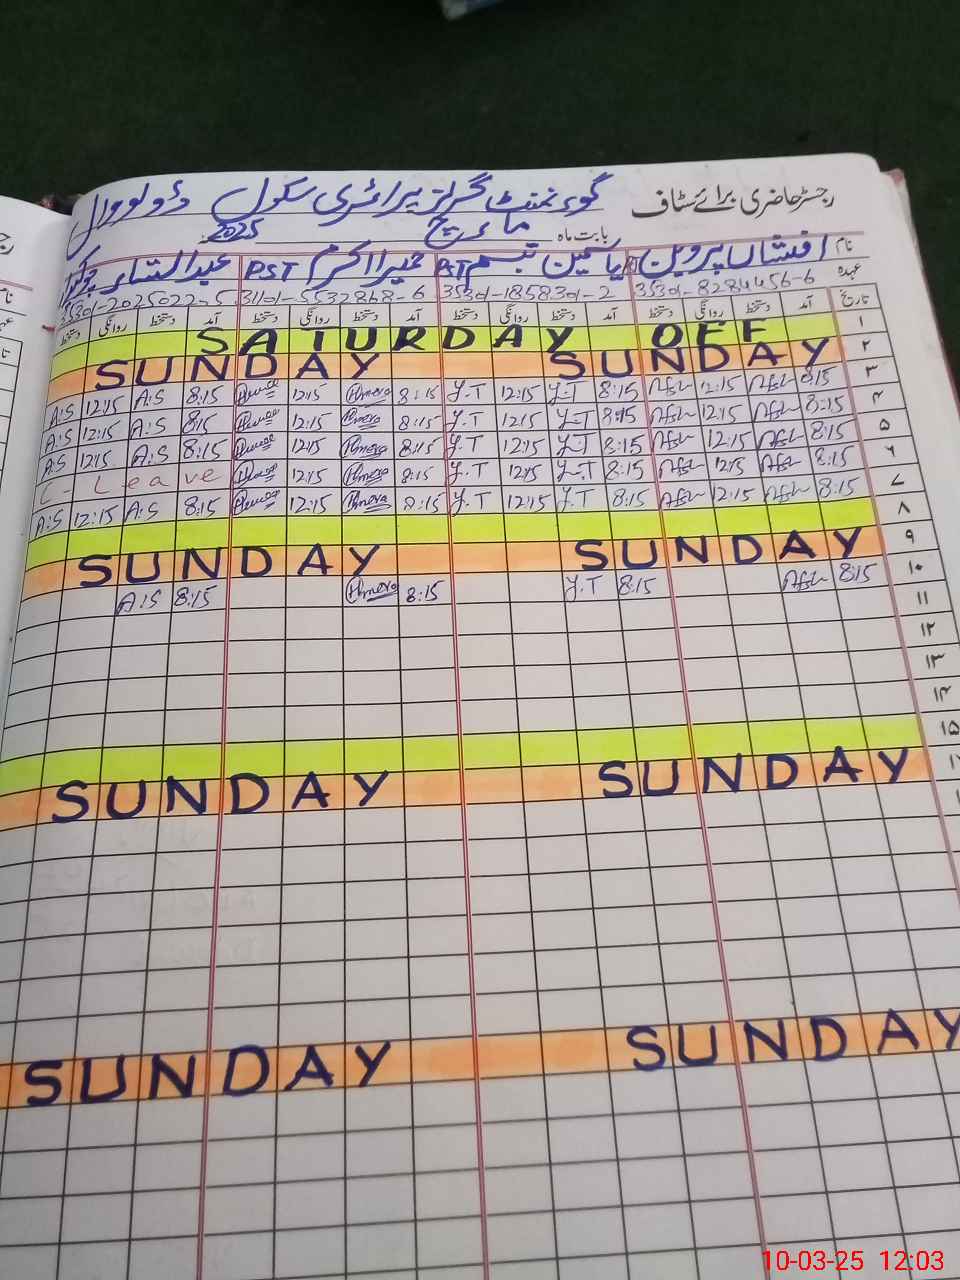 رجسٹر حاضری برائے سٹاف گورنمنٹ گرلز پرائمری سکول
بابت ماہ مارچ 2025
نام افشاں پروین یاسمین تبسم AT حمیرا اکرم PST عبدالستار
عہدہ 35301-8284456-6 35301-1858301-2 31101-5532868-6 35301-2025022-5
تاریخ آمد دستخط روانگی دستخط آمد دستخط روانگی دستخط آمد دستخط روانگی دستخط آمد دستخط روانگی دستخط
۱ SATURDAY OFF
۲ SUNDAY SUNDAY
۳ 8:15 Afsh 12:15 Afsh 8:15 Y.T 12:15 Y.T 8:15 Humera 12:15 Humera 8:15 A:S 12:15 A:S
۴ 8:15 Afsh 12:15 Afsh 8:15 Y.T 12:15 Y.T 8:15 Humera 12:15 Humera 8:15 A:S 12:15 A:S
۵ 8:15 Afsh 12:15 Afsh 8:15 Y.T 12:15 Y.T 8:15 Humera 12:15 Humera 8:15 A:S 12:15 A:S
۶ 8:15 Afsh 12:15 Afsh 8:15 Y.T 12:15 Y.T 8:15 Humera 12:15 Humera C-Leave
۷ 8:15 Afsh 12:15 Afsh 8:15 Y.T 12:15 Y.T 8:15 Humera 12:15 Humera 8:15 A:S 12:15 A:S
۸
۹ SUNDAY SUNDAY
۱۰ 8:15 Afsh 8:15 Y.T 8:15 Humera 8:15 A:S
۱۱
۱۲
۱۳
۱۴
۱۵
SUNDAY SUNDAY
SUNDAY SUNDAY
10-03-25 12:03